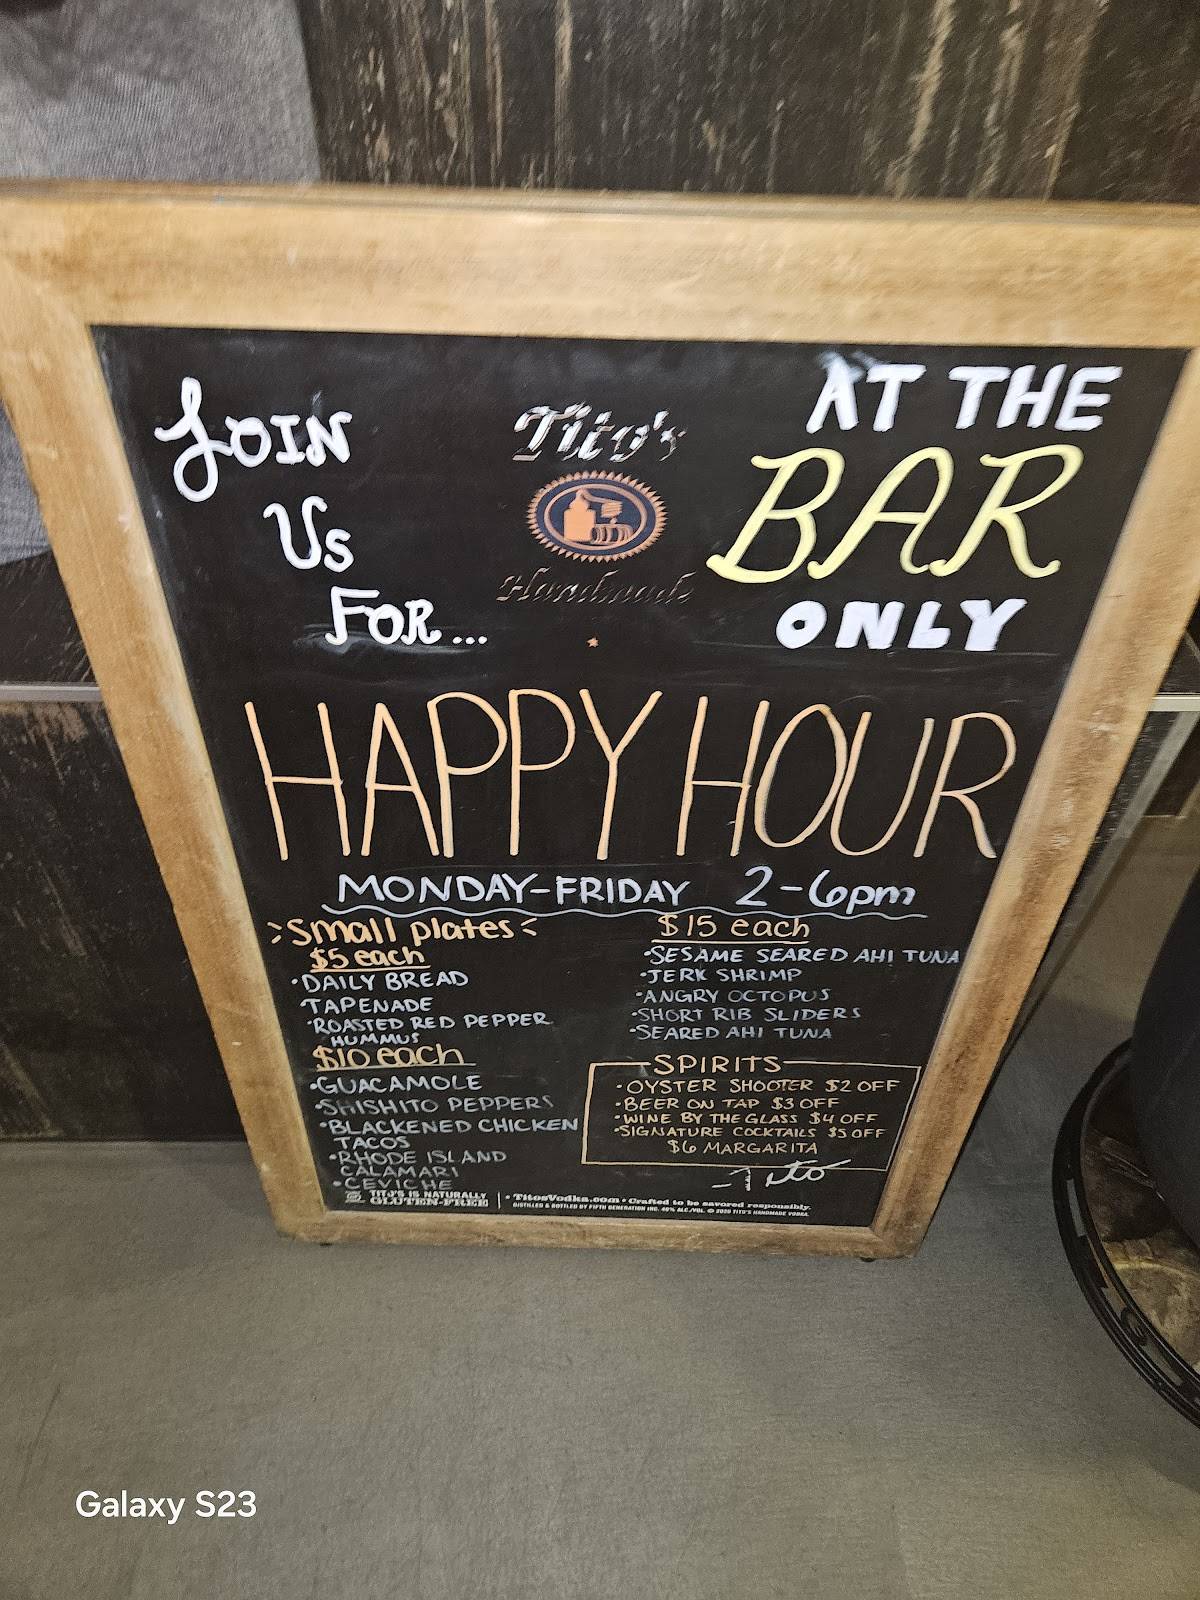 JOIN
US
FOR...
Tito's
Handmade
AT THE
BAR
ONLY
HAPPY HOUR
MONDAY-FRIDAY 2-6pm
Small plates
$5 each
•DAILY BREAD
TAPENADE
•ROASTED RED PEPPER
HUMMUS
$10 each
•GUACAMOLE
•SHISHITO PEPPERS
•BLACKENED CHICKEN
TACOS
•RHODE ISLAND
CALAMARI
•CEVICHE
$15 each
•SESAME SEARED AHI TUNA
•JERK SHRIMP
•ANGRY OCTOPUS
•SHORT RIB SLIDERS
•SEARED AHI TUNA
SPIRITS
•OYSTER SHOOTER $2 OFF
•BEER ON TAP $3 OFF
•WINE BY THE GLASS $4 OFF
•SIGNATURE COCKTAILS $5 OFF
$6 MARGARITA
-Tito
TITO'S IS NATURALLY
GLUTEN-FREE
• TitosVodka.com • Crafted to be savored responsibly.
DISTILLED & BOTTLED BY FIFTH GENERATION INC. 40% ALC./VOL. © 2020 TITO'S HANDMADE VODKA.
Galaxy S23